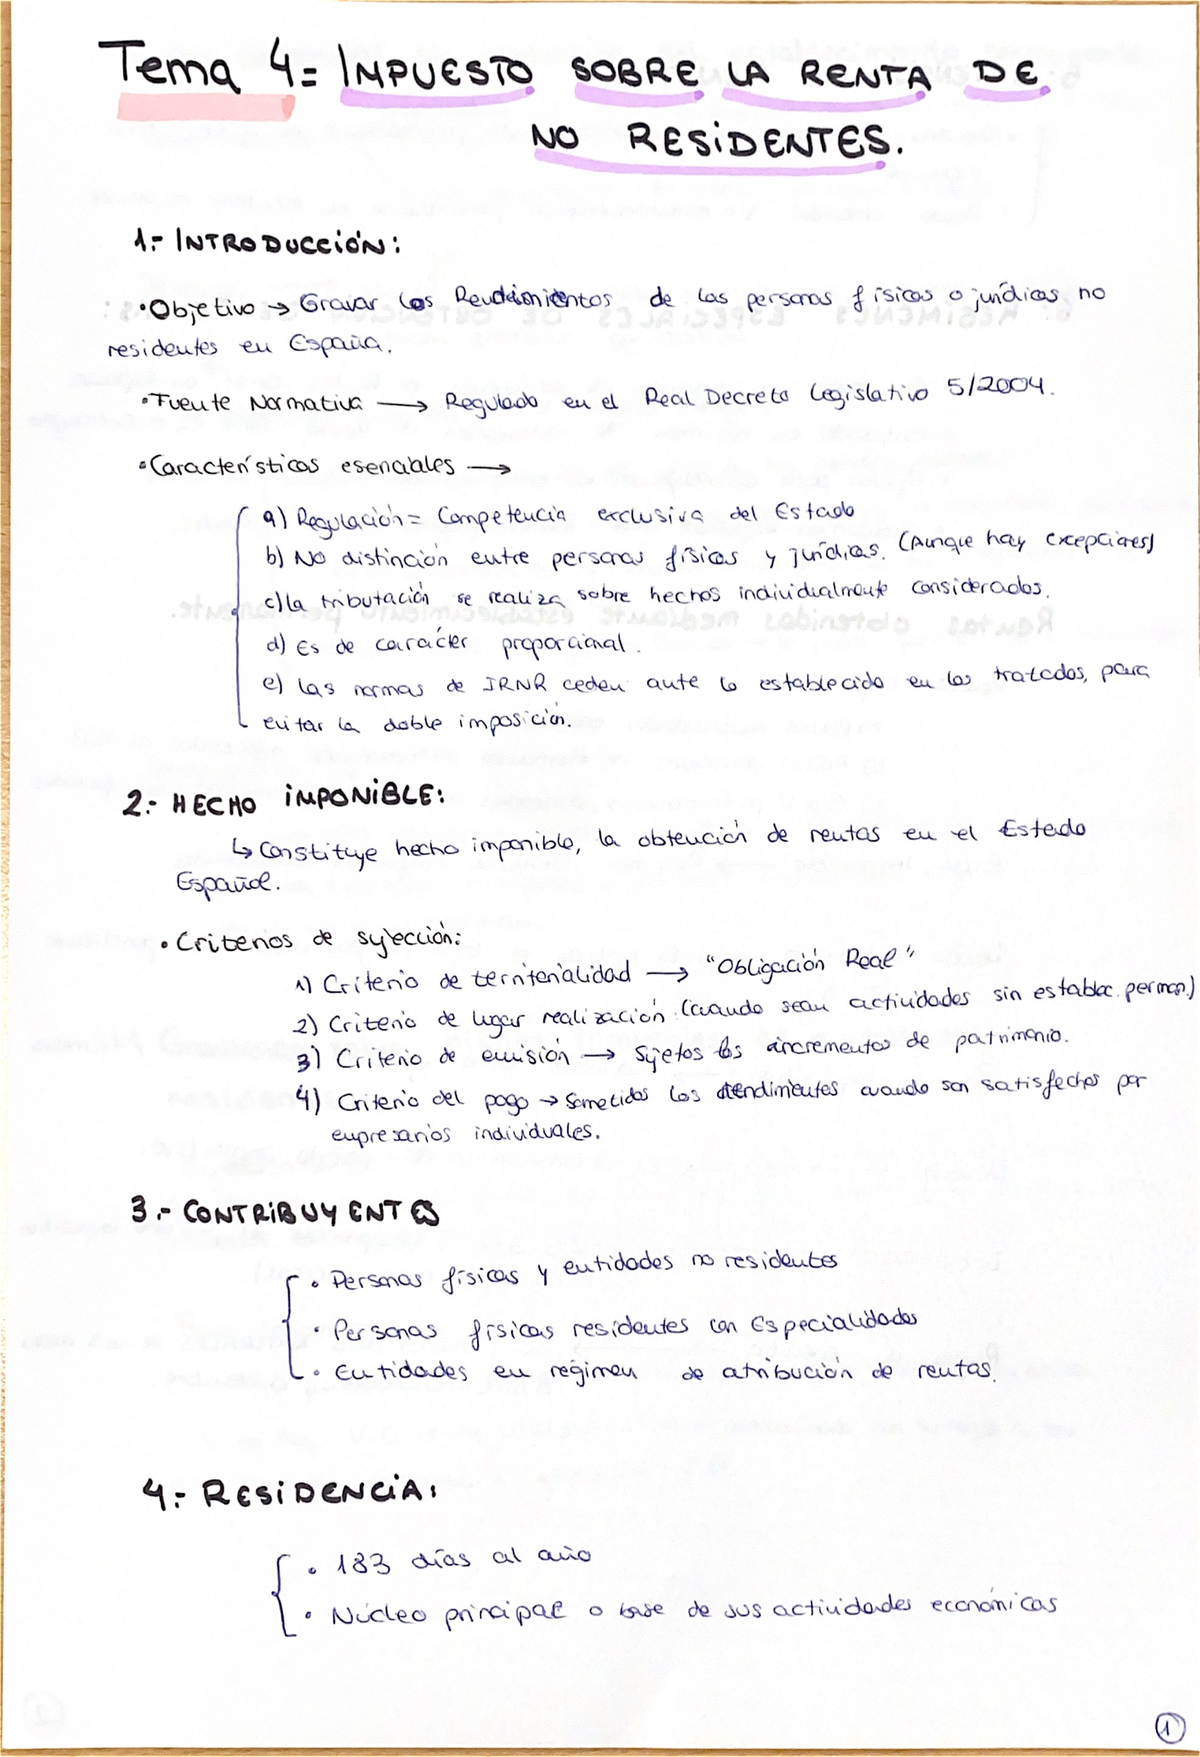 Tema 4= IMPUESTO SOBRE LA RENTA DE
NO RESIDENTES.
1.- INTRODUCCIÓN:
•Objetivo → Gravar los Rendimientos de las personas físicas o jurídicas no
residentes en España.
•Fuente Normativa → Regulado en el Real Decreto Legislativo 5/2004.
•Características esenciables →
a) Regulación = Competencia exclusiva del Estado
b) No distinción entre personas físicas y jurídicas. (Aunque hay excepciones)
c) La tributación se realiza sobre hechos individualmente considerados.
d) Es de carácter proporcional.
e) las normas de IRNR ceden ante lo establecido en los tratados, para
evitar la doble imposición.
2.- HECHO IMPONIBLE:
↳ Constituye hecho imponible, la obtención de rentas en el Estado
Español.
• Criterios de sujección:
1) Criterio de territorialidad → "Obligación Real"
2) Criterio de lugar realización (cuando sean actividades sin establec. perman.)
3) Criterio de emisión → Sujetos los incrementos de patrimonio.
4) Criterio del pago → Sometidos los rendimientos cuando son satisfechos por
empresarios individuales.
3.- CONTRIBUYENTES
• Personas físicas y entidades no residentes
• Personas físicas residentes con Especialidades
• Entidades en régimen de atribución de rentas.
4.- RESIDENCIA:
• 183 días al año
• Núcleo principal o base de sus actividades económicas
1